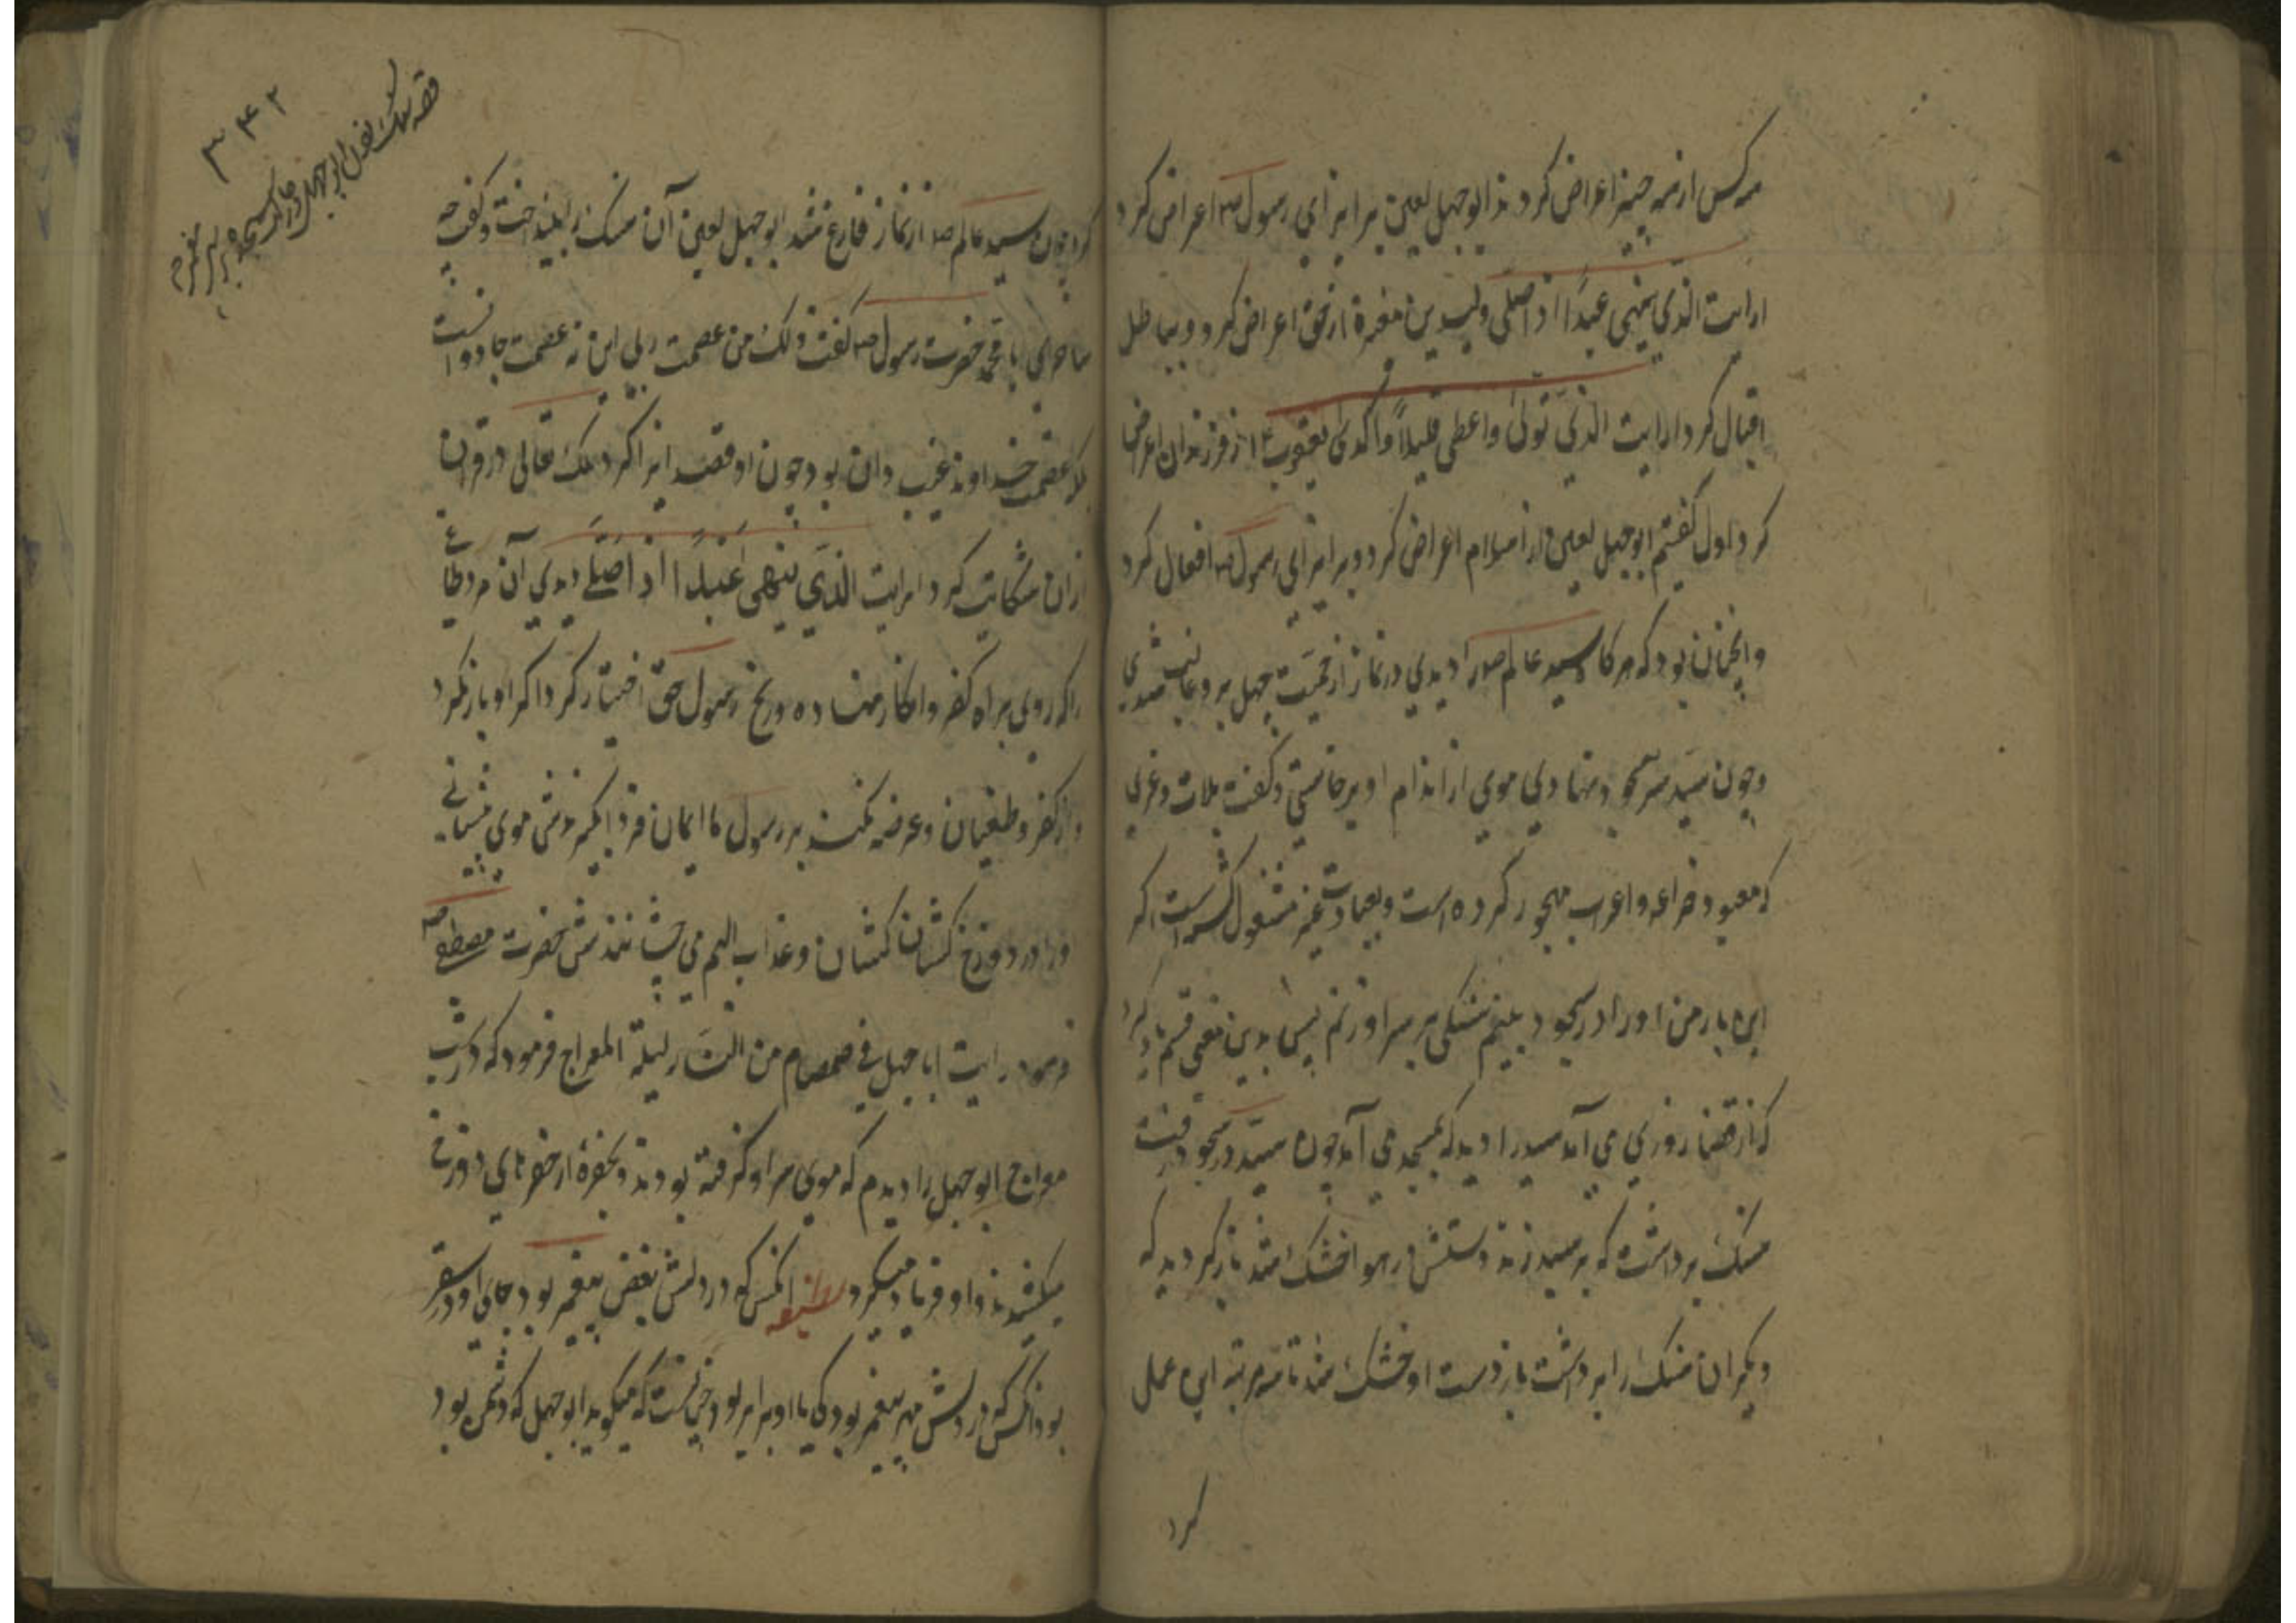 هرکس از همه چیز اعراض کردند ابوجهل لعین برابر ای رسول ص اعراض کرد
ارایت الذی ینهی عبدًا اذا صلی ولید بن مغیره از حق اعراض کرد و بباطل
اقبال کرد ارایت الذی تولی واعطی قلیلاً واکدی یعقوب ع از فرزندان اعراض
کرد اول گفتیم ابوجهل لعین از اسلام اعراض کرد و برابر ای رسول ص افعال کرد
وانچنان بود که هرکاه سید عالم ص را دیدی در نماز از حمیت جهل برو غالب شدی
وچون سید سر بسجود نهادی موی از اندام او برخاستی وکفت بلات وعزی
که معبود خزاعه واعراب مهجور کرده است وبعبادت غیر مشغول کشته است اکر
این بار من او را در سجود بینم سنکی بر سر او زنم پس بدین معنی قسم یاد کرد
که از قضا روزی می آمد سید را دید که بمسجد می آمد چون سید در سجود رفت
سنک برداشت که بر سید زند دستش در هوا خشک شد باز کردید که
دیکر ان سنک را برداشت باز دست او خشک شد تا سه مرتبه این عمل
کرد
۳۴۲
قصه سنک ابوجهل در سجده پیغمبر
کرد چون سید عالم ص از نماز فارغ شد ابوجهل لعین آن سنک را بینداخت وکفت چه
ساحری یا محمد حضرت رسول ص کفت ذلک من عصمت ربی این نه عصمت جادو است
بلکه عصمت خداوند غیب دان بود چون او قصد ایذا کرد ملک تعالی در قران
ازان شکایت کرد ارایت الذی ینهی عبدًا اذا صلی دیدی آن مرد طاغی
را که روی براه کفر وانکار نهاده و رنج رسول حق اختیار کرد اکر او باز نکرد
واز کفر وطغیان وعرضه نکند بر رسول ما ایمان فردا بکیرندش موی پیشانی
ورا در دوزخ کشان کشان وعذاب الیم می چشانندش حضرت مصطفی ص
فرمود رایت اباجهل فی ضمصام من النار لیلة المعراج فرمود که در شب
معراج ابوجهل را دیدم که موی سر او کرفته بودند و بحفرهٔ از حفرهای دوزخ
میکشیدند واو فریاد میکرد انکس که در دلش بغض پیغمبر بود جای او در سقر
بود انکس که در دلش مهر پیغمبر بود کی با او برابر بود چنانست که میکوید ابوجهل که دشمن بود